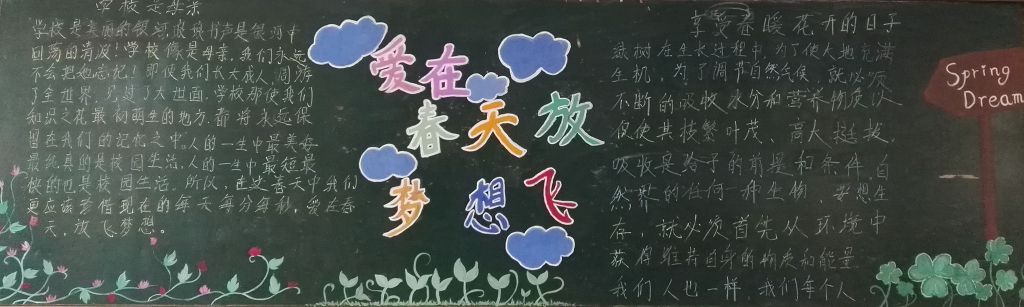 学校是母亲
学校是美丽的银河,琅琅书声是银河中
回荡的清波!学校像是母亲,我们永远
不会把她忘记!即使我们长大成人,周游
了全世界,见过了大世面,学校那使我们
知识之花最初萌生的地方,都将永远保
留在我们的记忆之中。人的一生中最美好
最纯真的是校园生活,人的一生中最短最
快的也是校园生活。所以,在这春天中我们
更应该珍惜现在的每天每分每秒,爱在春
天,放飞梦想。
爱在
春天放
梦想飞
享受春暖花开的日子
绿树在生长过程中,为了使大地充满
生机,为了调节自然气候
不断的吸收水分和营养物质以
促使其枝繁叶茂、高大挺拔。
吸收是给予的前提和条件,自
然界的任何一种生物,要想生
存,就必须首先从环境中
获得维持自身的物质和能量
我们人也一样,我们每个人
Spring
Dream